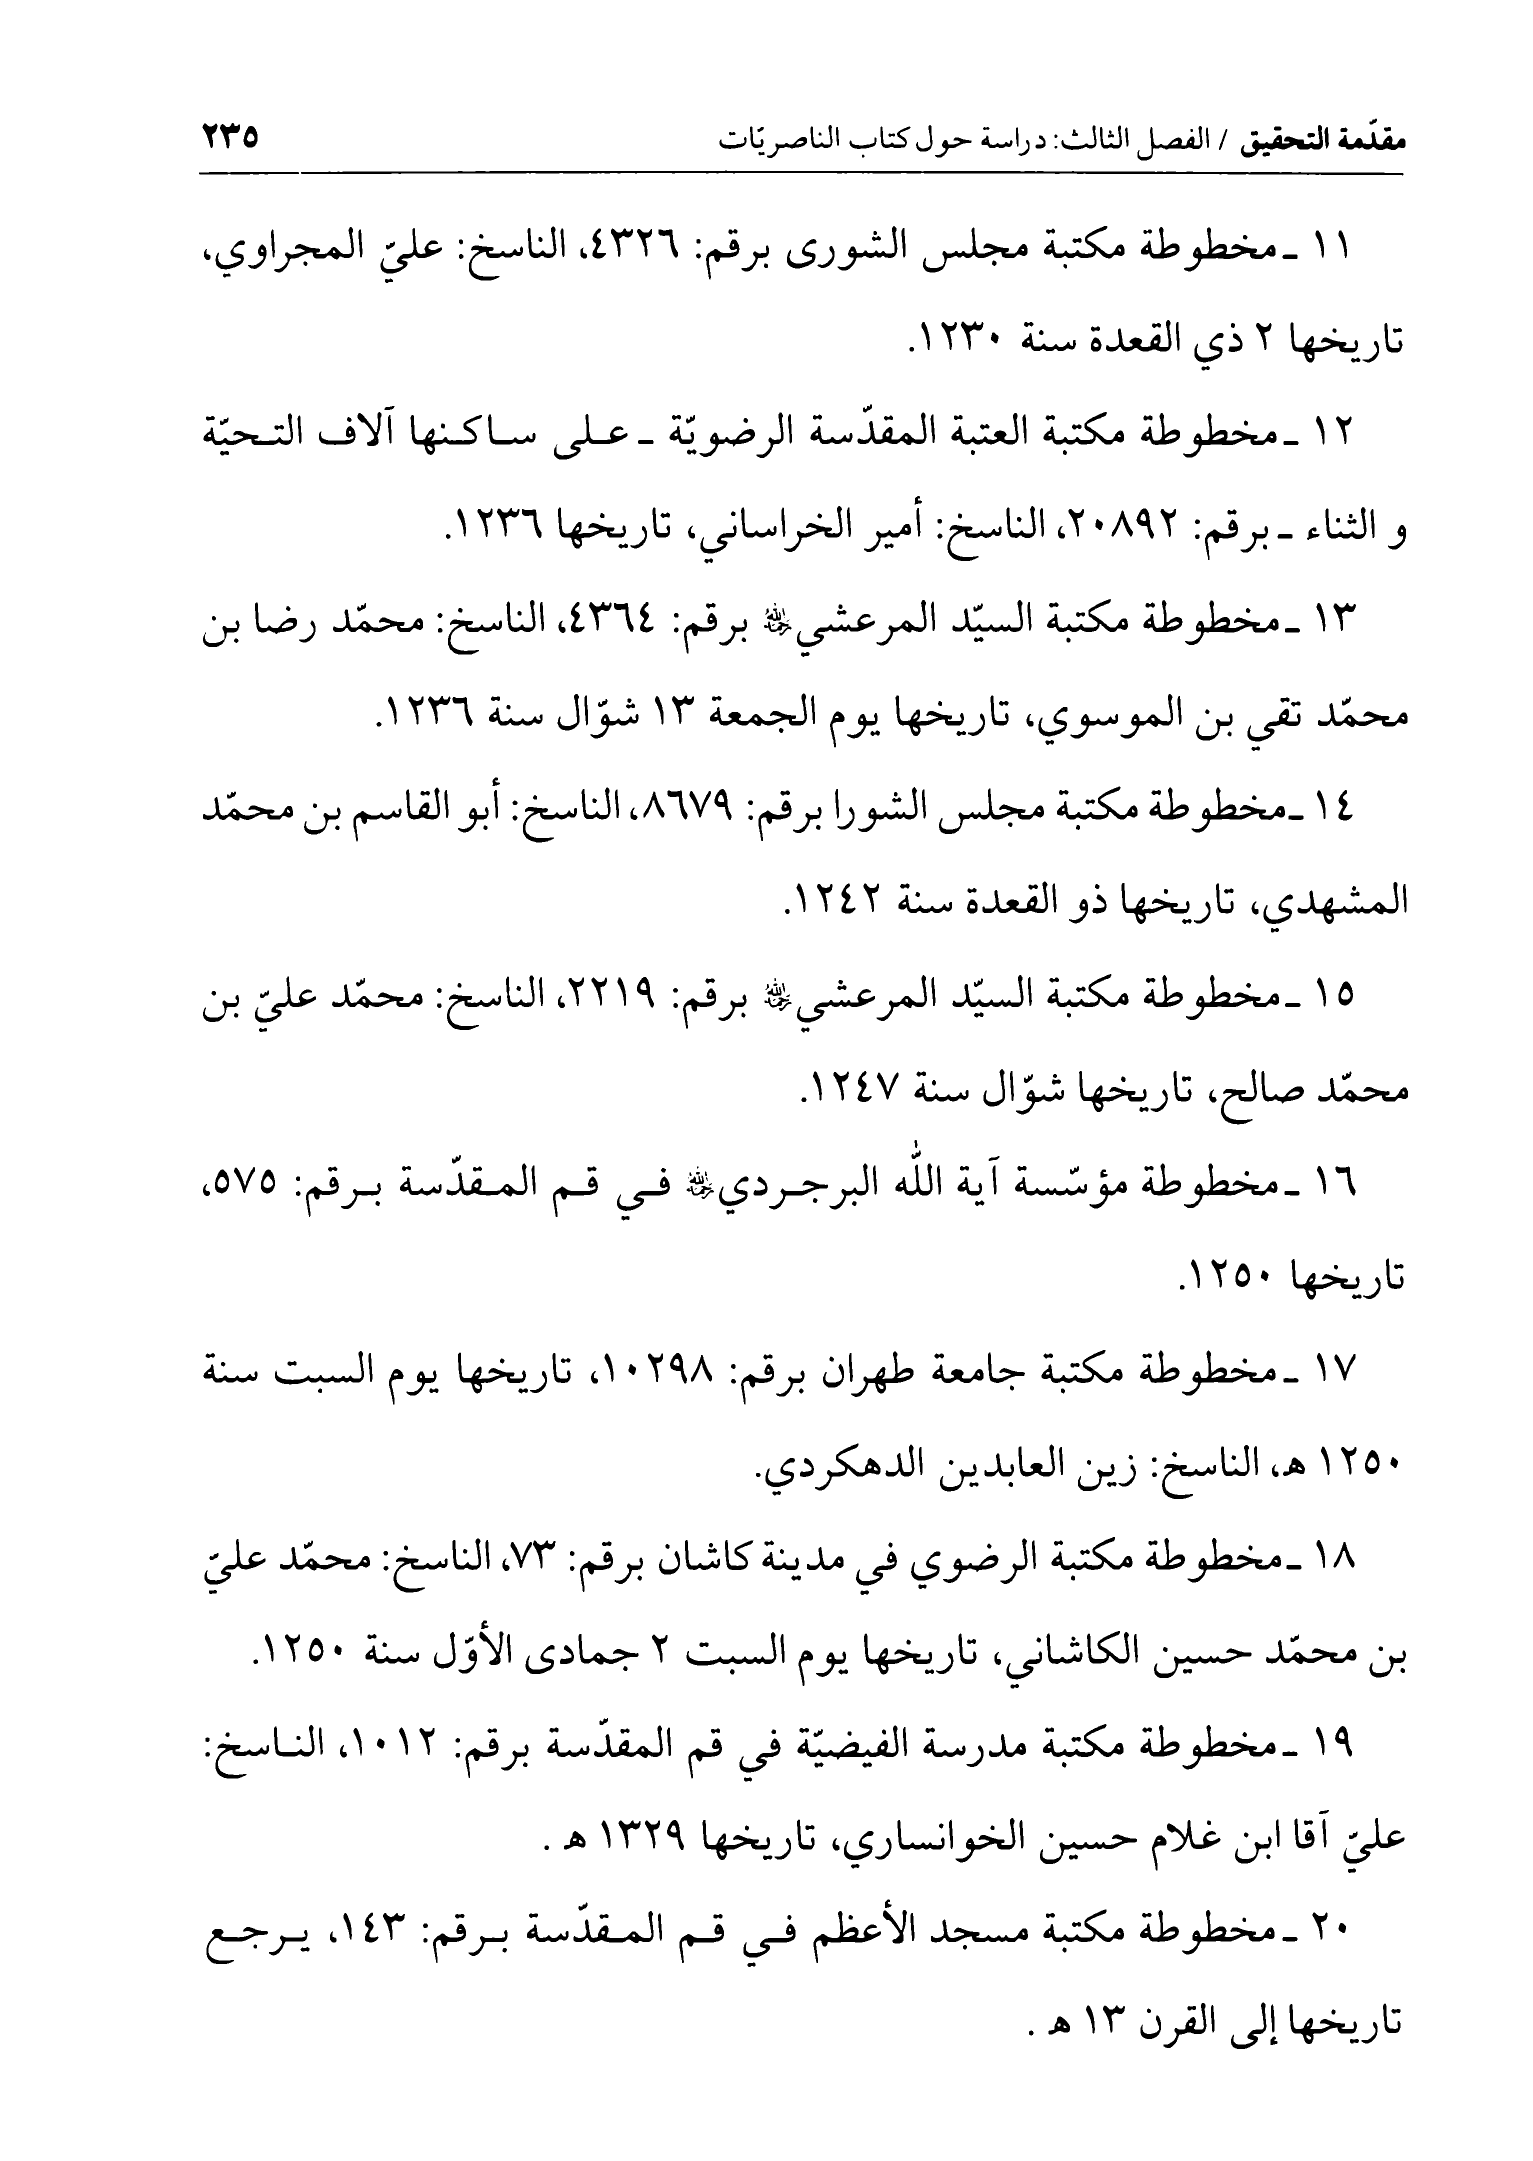 مقدّمة التحقيق / الفصل الثالث: دراسة حول كتاب الناصريّات ٢٣٥
١١ ـ مخطوطة مكتبة مجلس الشورى برقم: ٤٣٢٦، الناسخ: عليّ المجراوي،
تاريخها ٢ ذي القعدة سنة ١٢٣٠.
١٢ ـ مخطوطة مكتبة العتبة المقدّسة الرضويّة ـ عـلى ساكنها آلاف التحيّة
و الثناء ـ برقم: ٢٠٨٩٢، الناسخ: أمير الخراساني، تاريخها ١٢٣٦.
١٣ ـ مخطوطة مكتبة السيّد المرعشي رحمه الله برقم: ٤٣٦٤، الناسخ: محمّد رضا بن
محمّد تقي بن الموسوي، تاريخها يوم الجمعة ١٣ شوّال سنة ١٢٣٦.
١٤ ـ مخطوطة مكتبة مجلس الشورا برقم: ٨٦٧٩، الناسخ: أبو القاسم بن محمّد
المشهدي، تاريخها ذو القعدة سنة ١٢٤٢.
١٥ ـ مخطوطة مكتبة السيّد المرعشي رحمه الله برقم: ٢٢١٩، الناسخ: محمّد عليّ بن
محمّد صالح، تاريخها شوّال سنة ١٢٤٧.
١٦ ـ مخطوطة مؤسّسة آية اللّٰه البرجردي رحمه الله في قم المقدّسة برقم: ٥٧٥،
تاريخها ١٢٥٠.
١٧ ـ مخطوطة مكتبة جامعة طهران برقم: ١٠٢٩٨، تاريخها يوم السبت سنة
١٢٥٠ ه، الناسخ: زين العابدين الدهكردي.
١٨ ـ مخطوطة مكتبة الرضوي في مدينة كاشان برقم: ٧٣، الناسخ: محمّد عليّ
بن محمّد حسين الكاشاني، تاريخها يوم السبت ٢ جمادى الأوّل سنة ١٢٥٠.
١٩ ـ مخطوطة مكتبة مدرسة الفيضيّة في قم المقدّسة برقم: ١٠١٢، الناسخ:
عليّ آقا ابن غلام حسين الخوانساري، تاريخها ١٣٢٩ ه .
٢٠ ـ مخطوطة مكتبة مسجد الأعظم في قم المقدّسة برقم: ١٤٣، يرجع
تاريخها إلى القرن ١٣ ه .